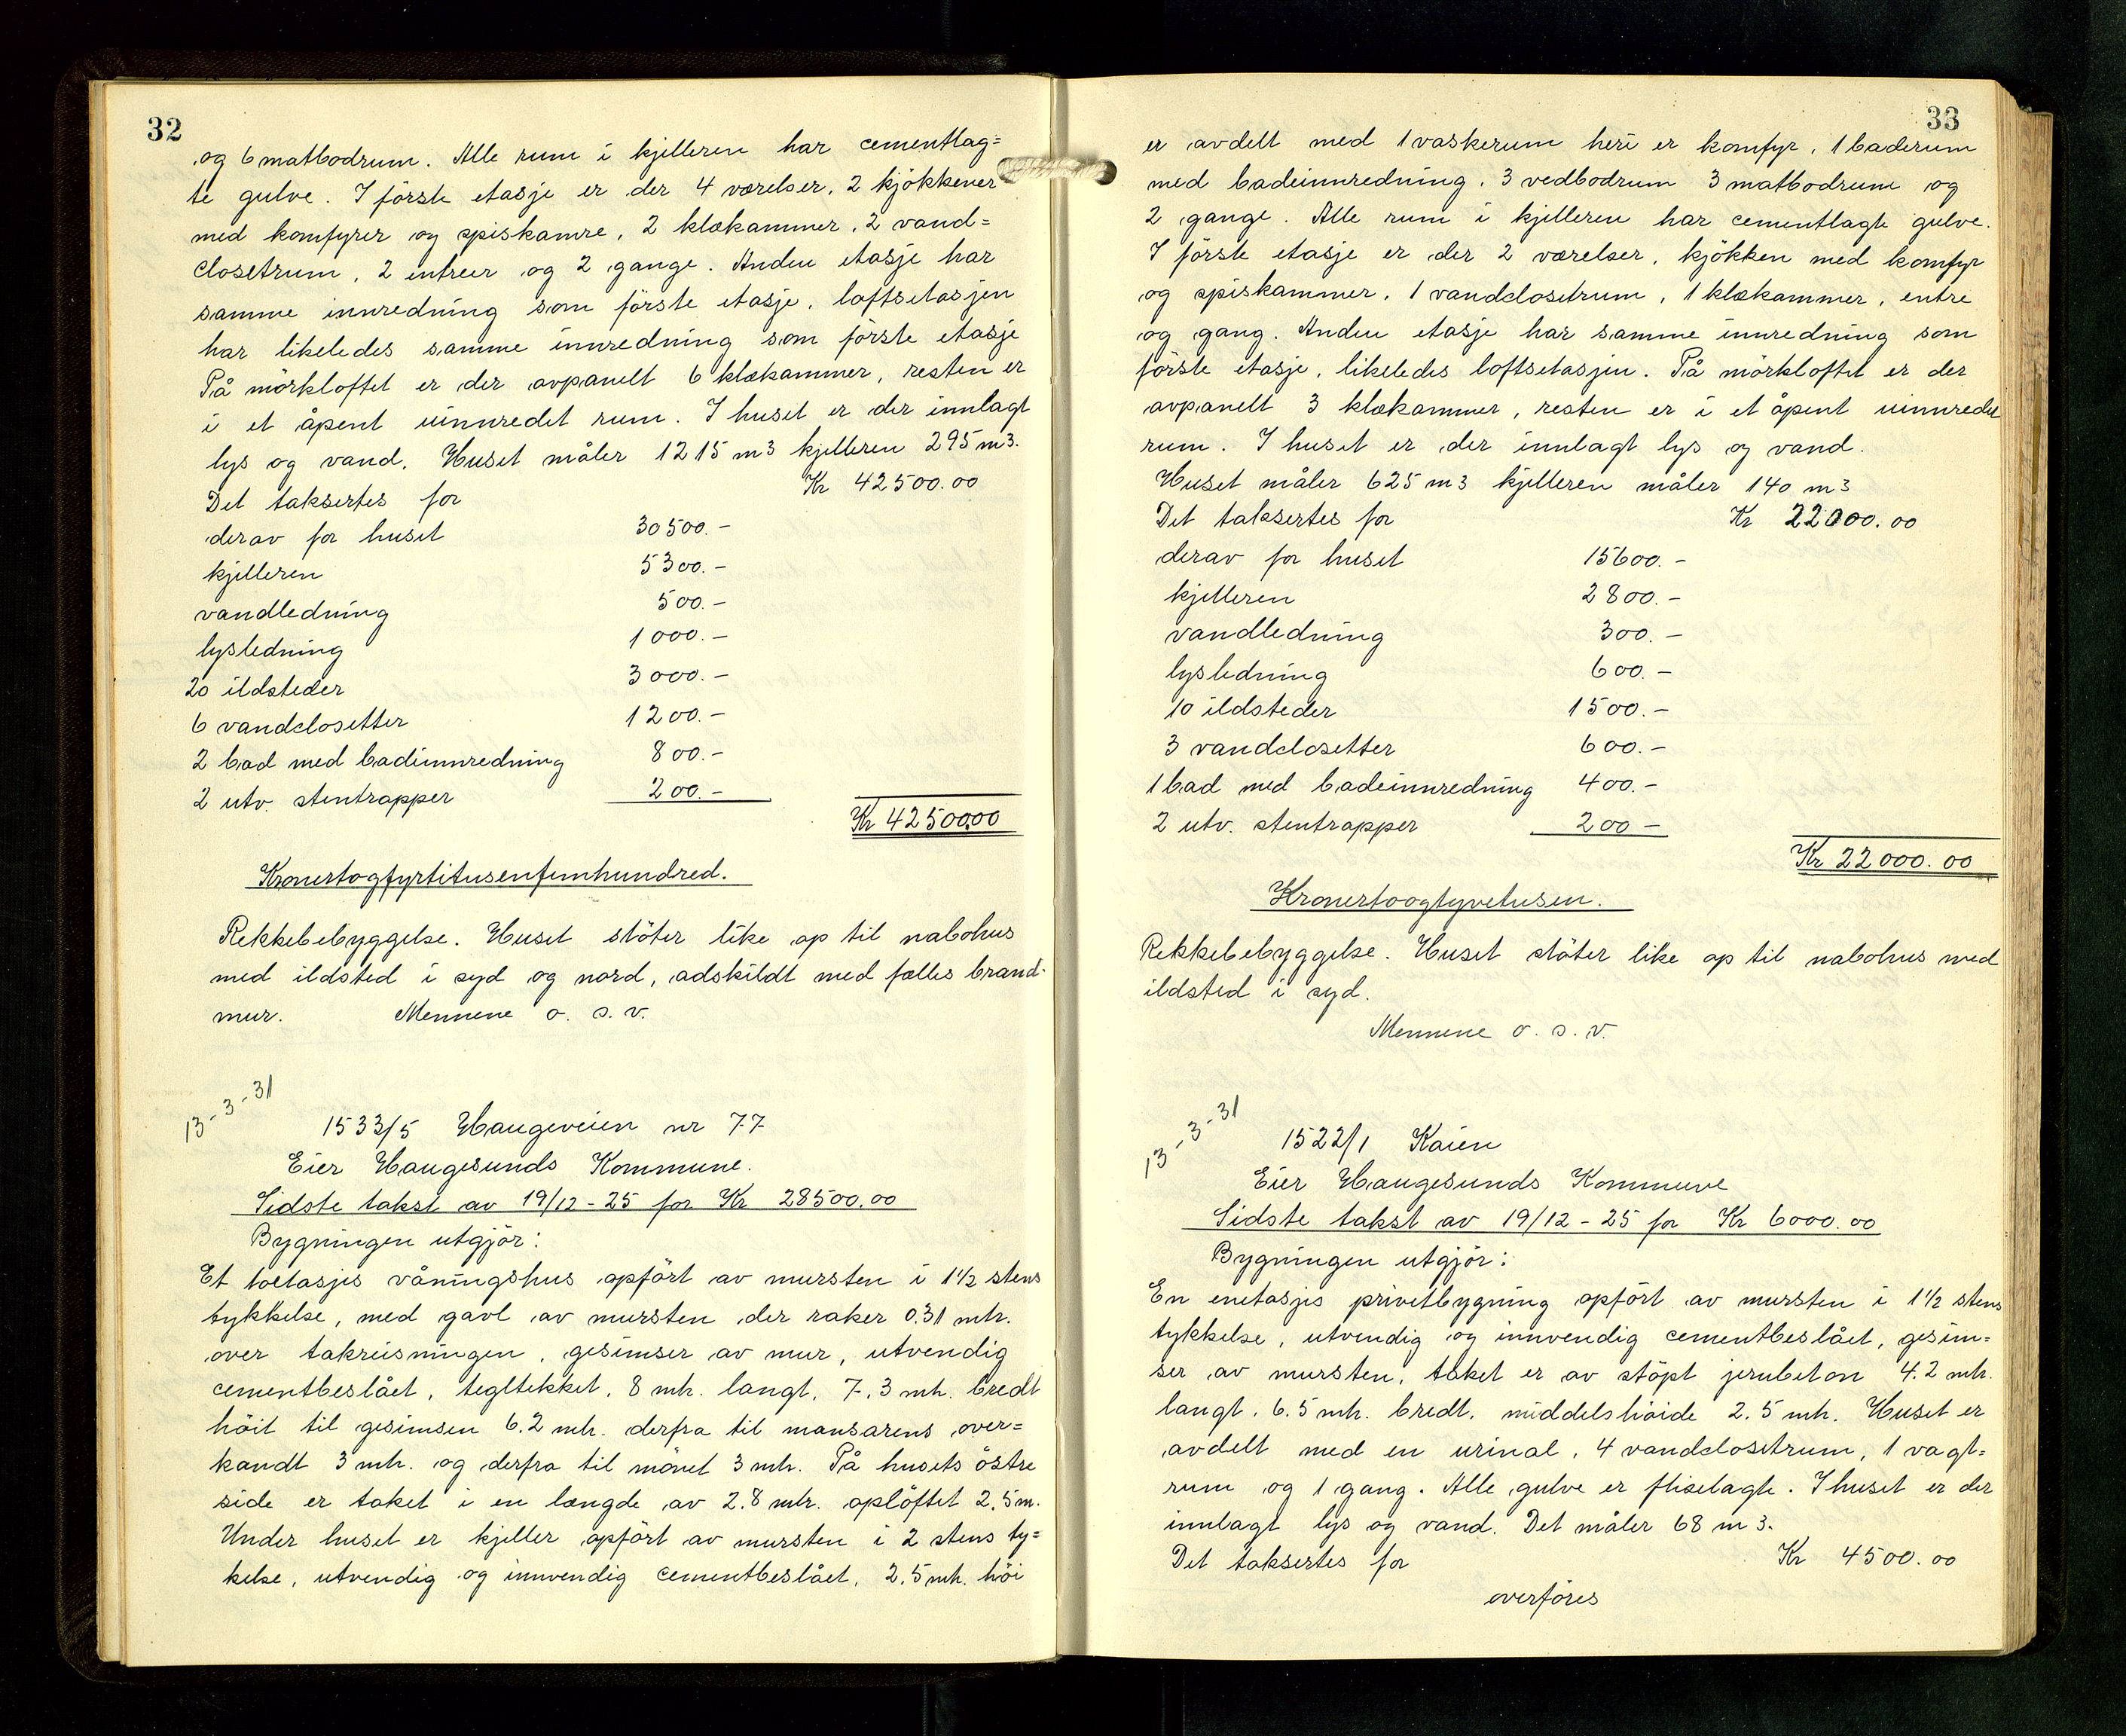 32
og 6 matbodrum. Alle rum i kjelleren har cementlag=
te gulve. I förste etasje er der 4 værelser, 2 kjökkener
med komfyrer og spiskamre, 2 klækammer, 2 vand=
closetrum, 2 entreer og 2 gange. Anden etasje har
samme innredning som förste etasje, loftsetasjen
har likeledes samme innredning som förste etasje
På mörkloftet er der avpanelt 6 klækammer, resten er
i et åpent uinnredet rum. I huset er der innlagt
lys og vand. Huset måler 1215 m3 kjelleren 295 m3.
Det taksertes for Kr 42500.00
derav for huset 30500.-
kjelleren 5300.-
vandledning 500.-
lysledning 1000.-
20 ildsteder 3000.-
6 vandclosetter 1200.-
2 bad med badeinnredning 800.-
2 utv. stentrapper 200.-
Kr 42500.00
Kronertogfyrtitusenfemhundred.
Rekkebebyggelse. Huset stöter like op til nabohus
med ildsted i syd og nord, adskildt med fælles brand-
mur. Mennene o. s. v.
13-3-31
1533/5 Haugeveien nr 77
Eier Haugesunds Kommune.
Sidste takst av 19/12-25 for Kr 28500.00
Bygningen utgjör:
Et toetasjes våningshus opfört av mursten i 1½ stens
tykkelse, med gavl av mursten der raker 0.31 mtr.
over takreisningen, gesimser av mur, utvendig
cementbeslået, tegltekket, 8 mtr. langt, 7,3 mtr. bredt
höit til gesimsen 6.2 mtr. derfra til mansarens over=
kandt 3 mtr. og derfra til mönet 3 mtr. På husets östre
side er taket i en længde av 2.8 mtr. oplöftet 2.5 m.
Under huset er kjeller opfört av mursten i 2 stens ty=
kelse, utvendig og innvendig cementbeslået, 2.5 mtr. höi
33
er avdelt med 1 vaskerum heri er komfyr, 1 baderum
med badeinnredning, 3 vedbodrum 3 matbodrum og
2 gange. Alle rum i kjelleren har cementlagte gulve.
I förste etasje er der 2 værelser, kjökken med komfyr
og spiskammer, 1 vandclosetrum, 1 klækammer, entre
og gang. Anden etasje har samme innredning som
förste etasje, likeledes loftsetasjen. På mörkloftet er der
avpanelt 3 klækammer, resten er i et åpent uinnredet
rum. I huset er der innlagt lys og vand.
Huset måler 625 m3 kjelleren måler 140 m3
Det taksertes for Kr 22000.00
derav for huset 15600.-
kjelleren 2800.-
vandledning 300.-
lysledning 600.-
10 ildsteder 1500.-
3 vandclosetter 600.-
1 bad med badeinnredning 400.-
2 utv. stentrapper 200-
Kr 22000.00
Kronertoogtyvetusen.
Rekkebebyggelse. Huset stöter like op til nabohus med
ildsted i syd.
Mennene o. s. v.
13-3-31
1522/1 Kaien
Eier Haugesunds Kommune
Sidste takst av 19/12-25 for Kr 6000.00
Bygningen utgjör:
En enetasjes privetbygning opfört av mursten i 1½ stens
tykkelse, utvendig og innvendig cementbeslået, gesim=
ser av mursten, taket er av stöpt jernbeton 4.2 mtr.
langt, 6.5 mtr. bredt, middelshöide 2.5 mtr. Huset er
avdelt med en urinal, 4 vandclosetrum, 1 vagt=
rum og 1 gang. Alle gulve er fliselagte. I huset er der
innlagt lys og vand. Det måler 68 m3.
Det taksertes for Kr 4500.00
overföres